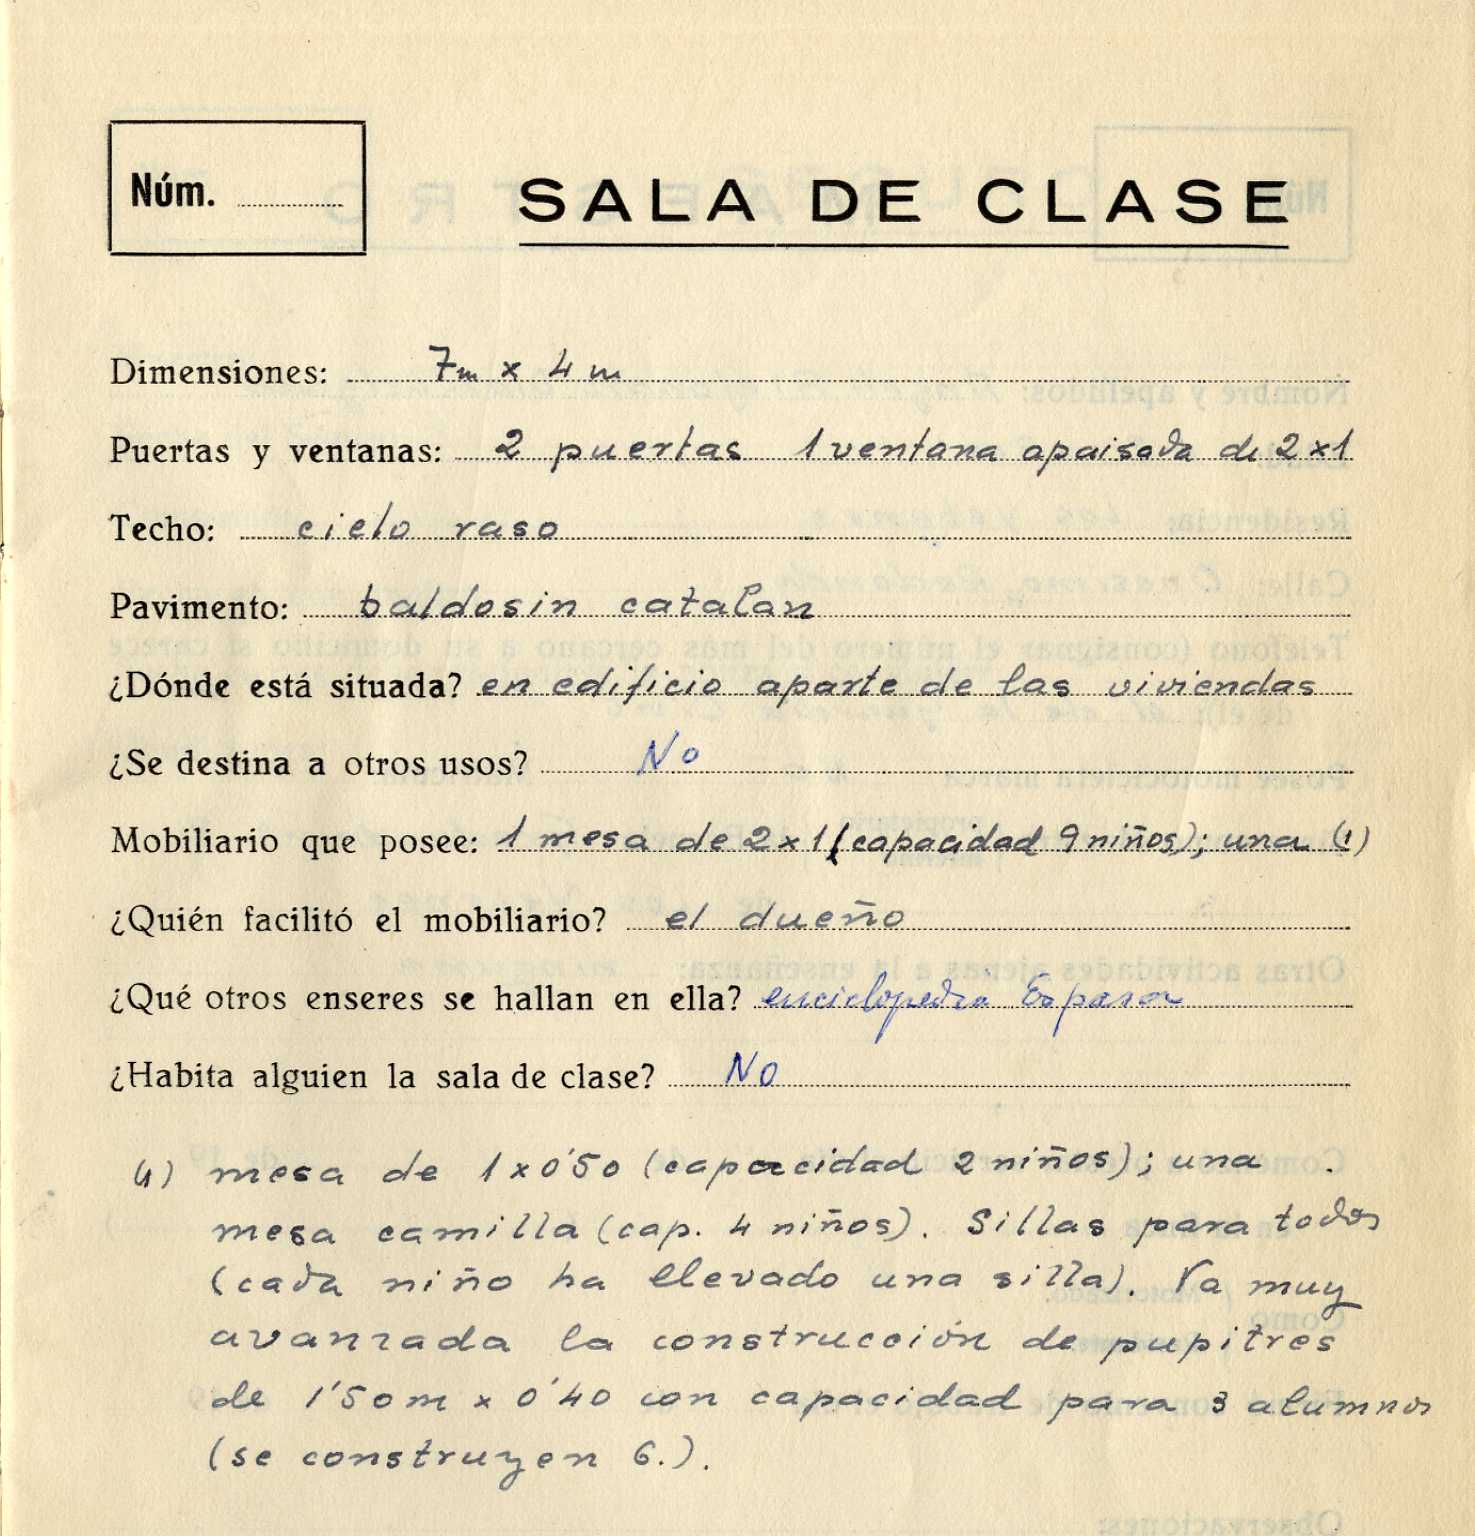 Núm.
SALA DE CLASE
Dimensiones: 7m x 4 m
Puertas y ventanas: 2 puertas 1 ventana apaisada de 2 x 1
Techo: cielo raso
Pavimento: baldosin catalan
¿Dónde está situada? en edificio aparte de las viviendas
¿Se destina a otros usos? No
Mobiliario que posee: 1 mesa de 2 x 1 (capacidad 9 niños); una (1)
¿Quién facilitó el mobiliario? el dueño
¿Qué otros enseres se hallan en ella? enciclopedia Espasa
¿Habita alguien la sala de clase? No
(1) mesa de 1 x 0'50 (capacidad 2 niños); una
mesa camilla (cap. 4 niños). Sillas para todos
(cada niño ha llevado una silla). Va muy
avanzada la construcción de pupitres
de 1'50 m x 0'40 con capacidad para 3 alumnos
(se construyen 6.).